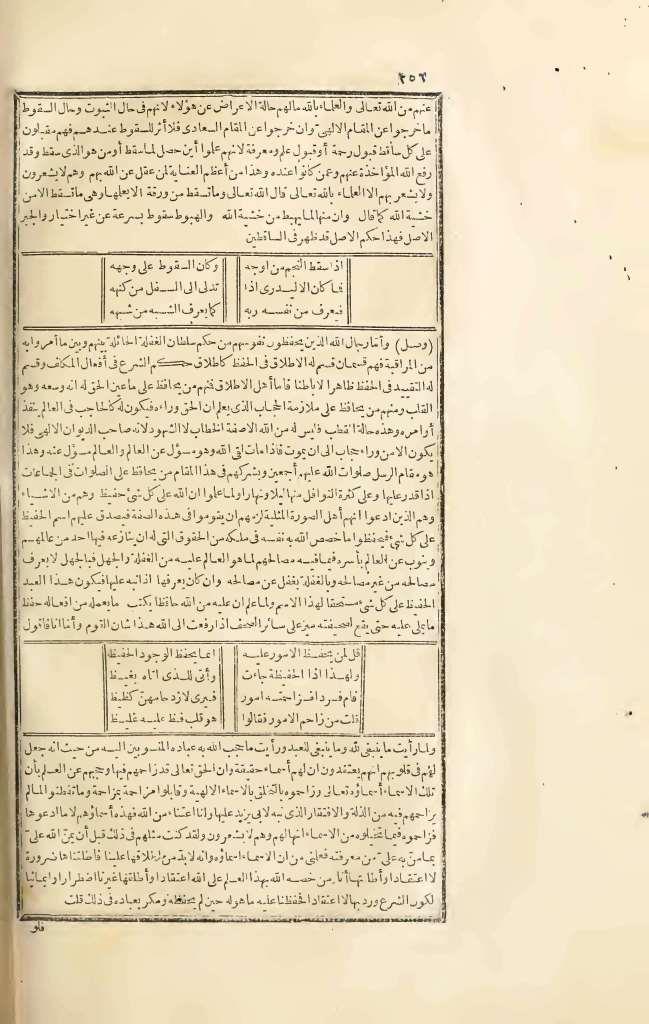 ٢٥٢
عنهم من الله تعالى والعلماء بالله مالهم حالة الاعراض عن هؤلاء لانهم فى حال الثبوت وحال السقوط
ماخرجوا عن المقام الالهى وان خرجوا عن المقام السعادى فلا أثر للسقوط عندهم فهم مقبلون
على كل ساقط قبول رحمة أو قبول علم ومعرفة لانهم علموا أين حصل لما سقط أو من هو الذى سقط وقد
رفع الله المؤاخذة عنهم وعن كانوا عنده وهذا من أعظم العناية لمن عقل عن الله بهم وهم لا يشعرون
ولا يشعر بهم الا العلماء بالله تعالى قال الله تعالى وما تسقط من ورقة الا يعلمها وهى ما تسقط الا من
خشية الله كما قال وان منها لما يهبط من خشية الله والهبوط سقوط بسرعة عن غير اختيار والجبر
الاصل فهذا حكم الاصل قد ظهر فى الساقطين
اذا سقط النجم من اوجه وكان السقوط على وجهه
فما كان الا ليدرى اذا تدلى الى السفل من كنهه
فيعرف من نفسه ربه كما يعرف الشبه من شبهه
(وصل) وأما رجال الله الذين يحفظون نفوسهم من حكم سلطان الغفلة الحائلة بينهم وبين ما أمروا به
من المراقبة فهم قسمان قسم له الاطلاق فى الحفظ كاطلاق حكم الشرع فى أفعال المكلف وقسم
له التقييد فى الحفظ ظاهرا لا باطنا فاما أهل الاطلاق فمنهم من يحافظ على ماعين الحق له انه وسعه وهو
القلب ومنهم من يحافظ على ملازمة الحجاب الذى يعلم ان الحق وراءه فيكون له كالحاجب فى العالم ينفذ
أوامره وهذه حالة القطب فليس له من الله الا صفة الخطاب لا الشهود لانه صاحب الديوان الالهى فلا
يكون الا من وراء حجاب الى ان يموت فاذا مات لقى الله وهو مسؤل عن العالم والعالم مسؤل عنه وهذا
هو مقام الرسل صلوات الله عليهم أجمعين ويشركهم فى هذا المقام من يحافظ على الصلوات فى الجماعات
اذا قدر عليها وعلى كثرة النوافل منها ليلا ونهارا ولما علموا ان الله على كل شئ حفيظ وهم من الاشياء
وهم الذين ادعوا انهم أهل الصورة المثلية لزمهم ان يقوموا فى هذه الصفة فيصدق عليهم اسم الحفيظ
على كل شئ فيحفظوا ما خصص الله به نفسه فى ملكه من الحقوق التى له ان ينازعه فيها احد من عالمهم
وينوب عن العالم بأسره فيما فيه مصالحهم لما هو العالم عليه من الغفلة والجهل فبالجهل لا يعرف
مصالحه من غير مصالحه وبالغفلة يغفل عن مصالحه وان كان يعرفها اذا نبه عليها فيكون هذا العبد
الحفيظ على كل شئ مستحقا لهذا الاسم ولما علم ان عليه من الله حافظا يكتب ما يعمله من افعاله حفظ
ما يملى عليه حتى يقع لصحيفته ميز على سائر الصحف اذا رفعت الى الله هذا شان القوم وأما انا فاقول
قل لمن يحفظ الامور عليه انما يحفظ الوجود الحفيظه
ولهذا اذا الحفيظة جاءت وأتى للذى اتاه بغيظ
قام فردا فزاحمته امور فيرى لازدحامهن كظيظ
قلت من زاحم الامور فقالوا هو قلب فظ عليه غليظ
ولما رأيت ما ينبغى لله وما ينبغى للعبد ورأيت ما حجب الله به عباده المنسوبين اليه من حيث انه جعل
لهم فى قلوبهم انهم يعتقدون ان لهم أسماء حقيقة وان الحق تعالى قد زاحمهم فيها وحجبهم عن العلم بأن
تلك الاسماء أسماؤه تعالى وزاحموه بالتخلق بالاسماء الالهية وقابلوا مزاحمة بمزاحمة وما تفطنوا لما لم
يزاحمهم فيه من الذلة والافتقار الذى نبه لابى يزيد عليها ولنا اعتناء من الله فهذه أسماؤهم لا ما ادعوها
فزاحموه فيما تخيلوه من الاسماء انها لهم وهم لا يشعرون ولقد كنت مثلهم فى ذلك قبل أن يمن الله على
بما من به على من معرفته فعلمنى من ان الاسماء اسماؤه وانه لابد من اطلاقها علينا فاطلقناها ضرورة
لا اعتقادا وأطلقتها أنا ومن خصه الله بهذا العلم على الله اعتقادا وأطلقها غيرنا اضطرارا وايمانا
لكون الشرع ورد بها لا اعتقادا لحفظنا عليه ما هو له حين لم يحفظه ومكر بعباده فى ذلك قلت
فلو